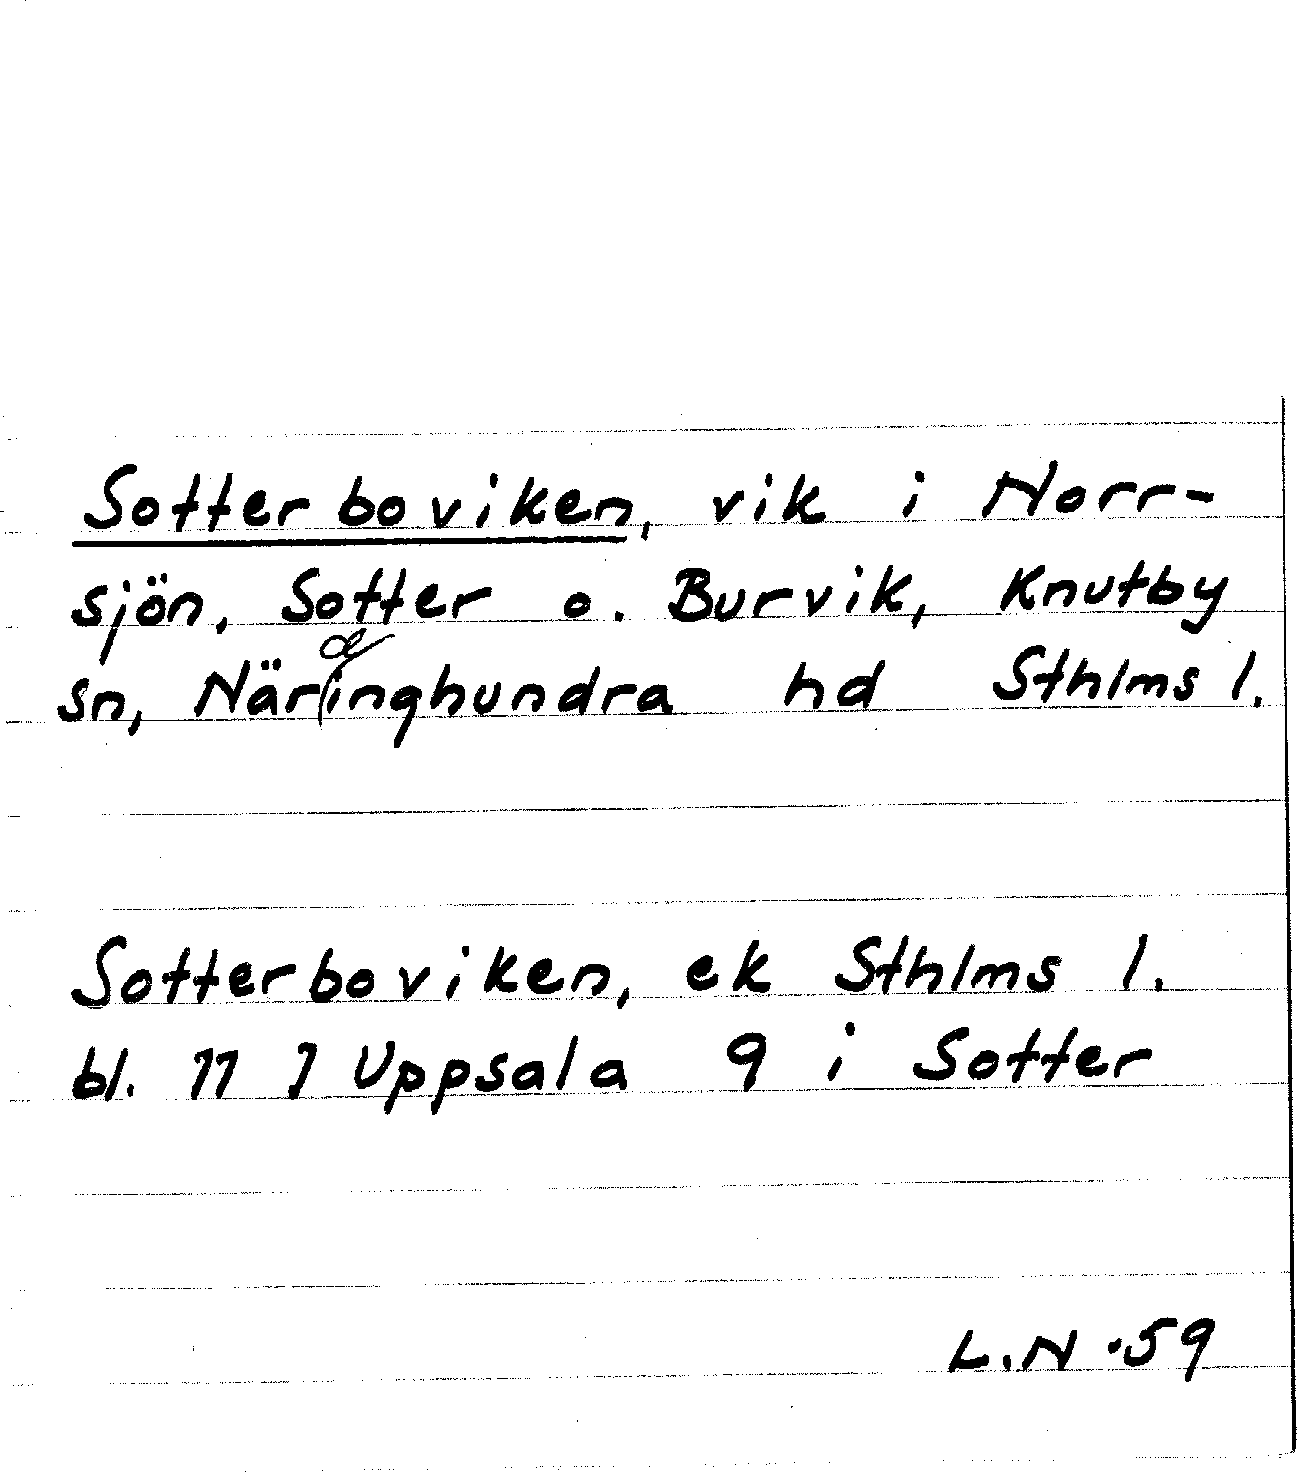 Sotterboviken, vik i Norr-
sjön, Sotter o. Burvik, Knutby
sn, Närdinghundra hd Sthlms l.
Sotterboviken, ek Sthlms l.
bl. 11 1 Uppsala 9 i Sotter
L.N. 59